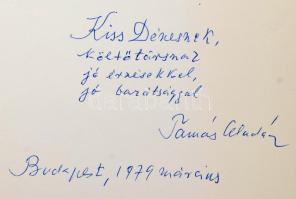 Kiss Dénesnek,
költőtársnak
jó érzésekkel,
jó barátsággal
Tamás Aladár
Budapest, 1979 március